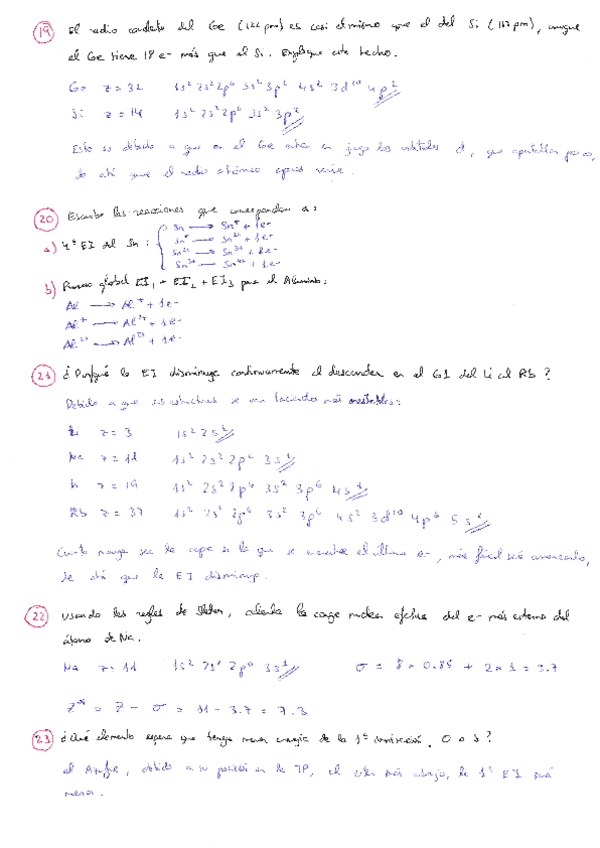 19 El radio covalente del Ge (122 pm) es casi el mismo que el del Si (117 pm), aunque
el Ge tiene 18 e- más que el Si. Explique este hecho.
Ge z = 32 1s² 2s² 2p⁶ 3s² 3p⁶ 4s² 3d¹⁰ 4p²
Si z = 14 1s² 2s² 2p⁶ 3s² 3p²
Esto es debido a que en el Ge entra en juego los orbitales d, que apantallan poco,
de ahí que el radio atómico apenas varíe.
20 Escribe las reacciones que correspondan a:
a) 4ª EI del Sn: Sn → Sn⁺ + 1e-
Sn⁺ → Sn²⁺ + 1e-
Sn²⁺ → Sn³⁺ + 1e-
Sn³⁺ → Sn⁴⁺ + 1e-
b) Proceso global EI₁ + EI₂ + EI₃ para el Aluminio:
Al → Al⁺ + 1e-
Al⁺ → Al²⁺ + 1e-
Al²⁺ → Al³⁺ + 1e-
21 ¿Porqué la EI disminuye continuamente al descender en el G1 del Li al Rb?
Debido a que sus estructuras se van haciendo más
Li z = 3 1s² 2s¹
Na z = 11 1s² 2s² 2p⁶ 3s¹
K z = 19 1s² 2s² 2p⁶ 3s² 3p⁶ 4s¹
Rb z = 37 1s² 2s² 2p⁶ 3s² 3p⁶ 4s² 3d¹⁰ 4p⁶ 5s¹
Cuanto mayor sea la capa en la que se encuentre el último e-, más fácil será arrancarlo,
de ahí que la EI disminuya.
22 Usando las reglas de Slater, calcula la carga nuclear efectiva del e- más externo del
átomo de Na.
Na z = 11 1s² 2s² 2p⁶ 3s¹ σ = 8 × 0.85 + 2 × 1 = 3.7
Z* = Z - σ = 11 - 3.7 = 7.3
23 ¿Qué elemento espera que tenga menor energía de la 1ª ionización, O o S?
el Azufre, debido a su posición en la TP, al estar más abajo, la 1ª EI será
menor.